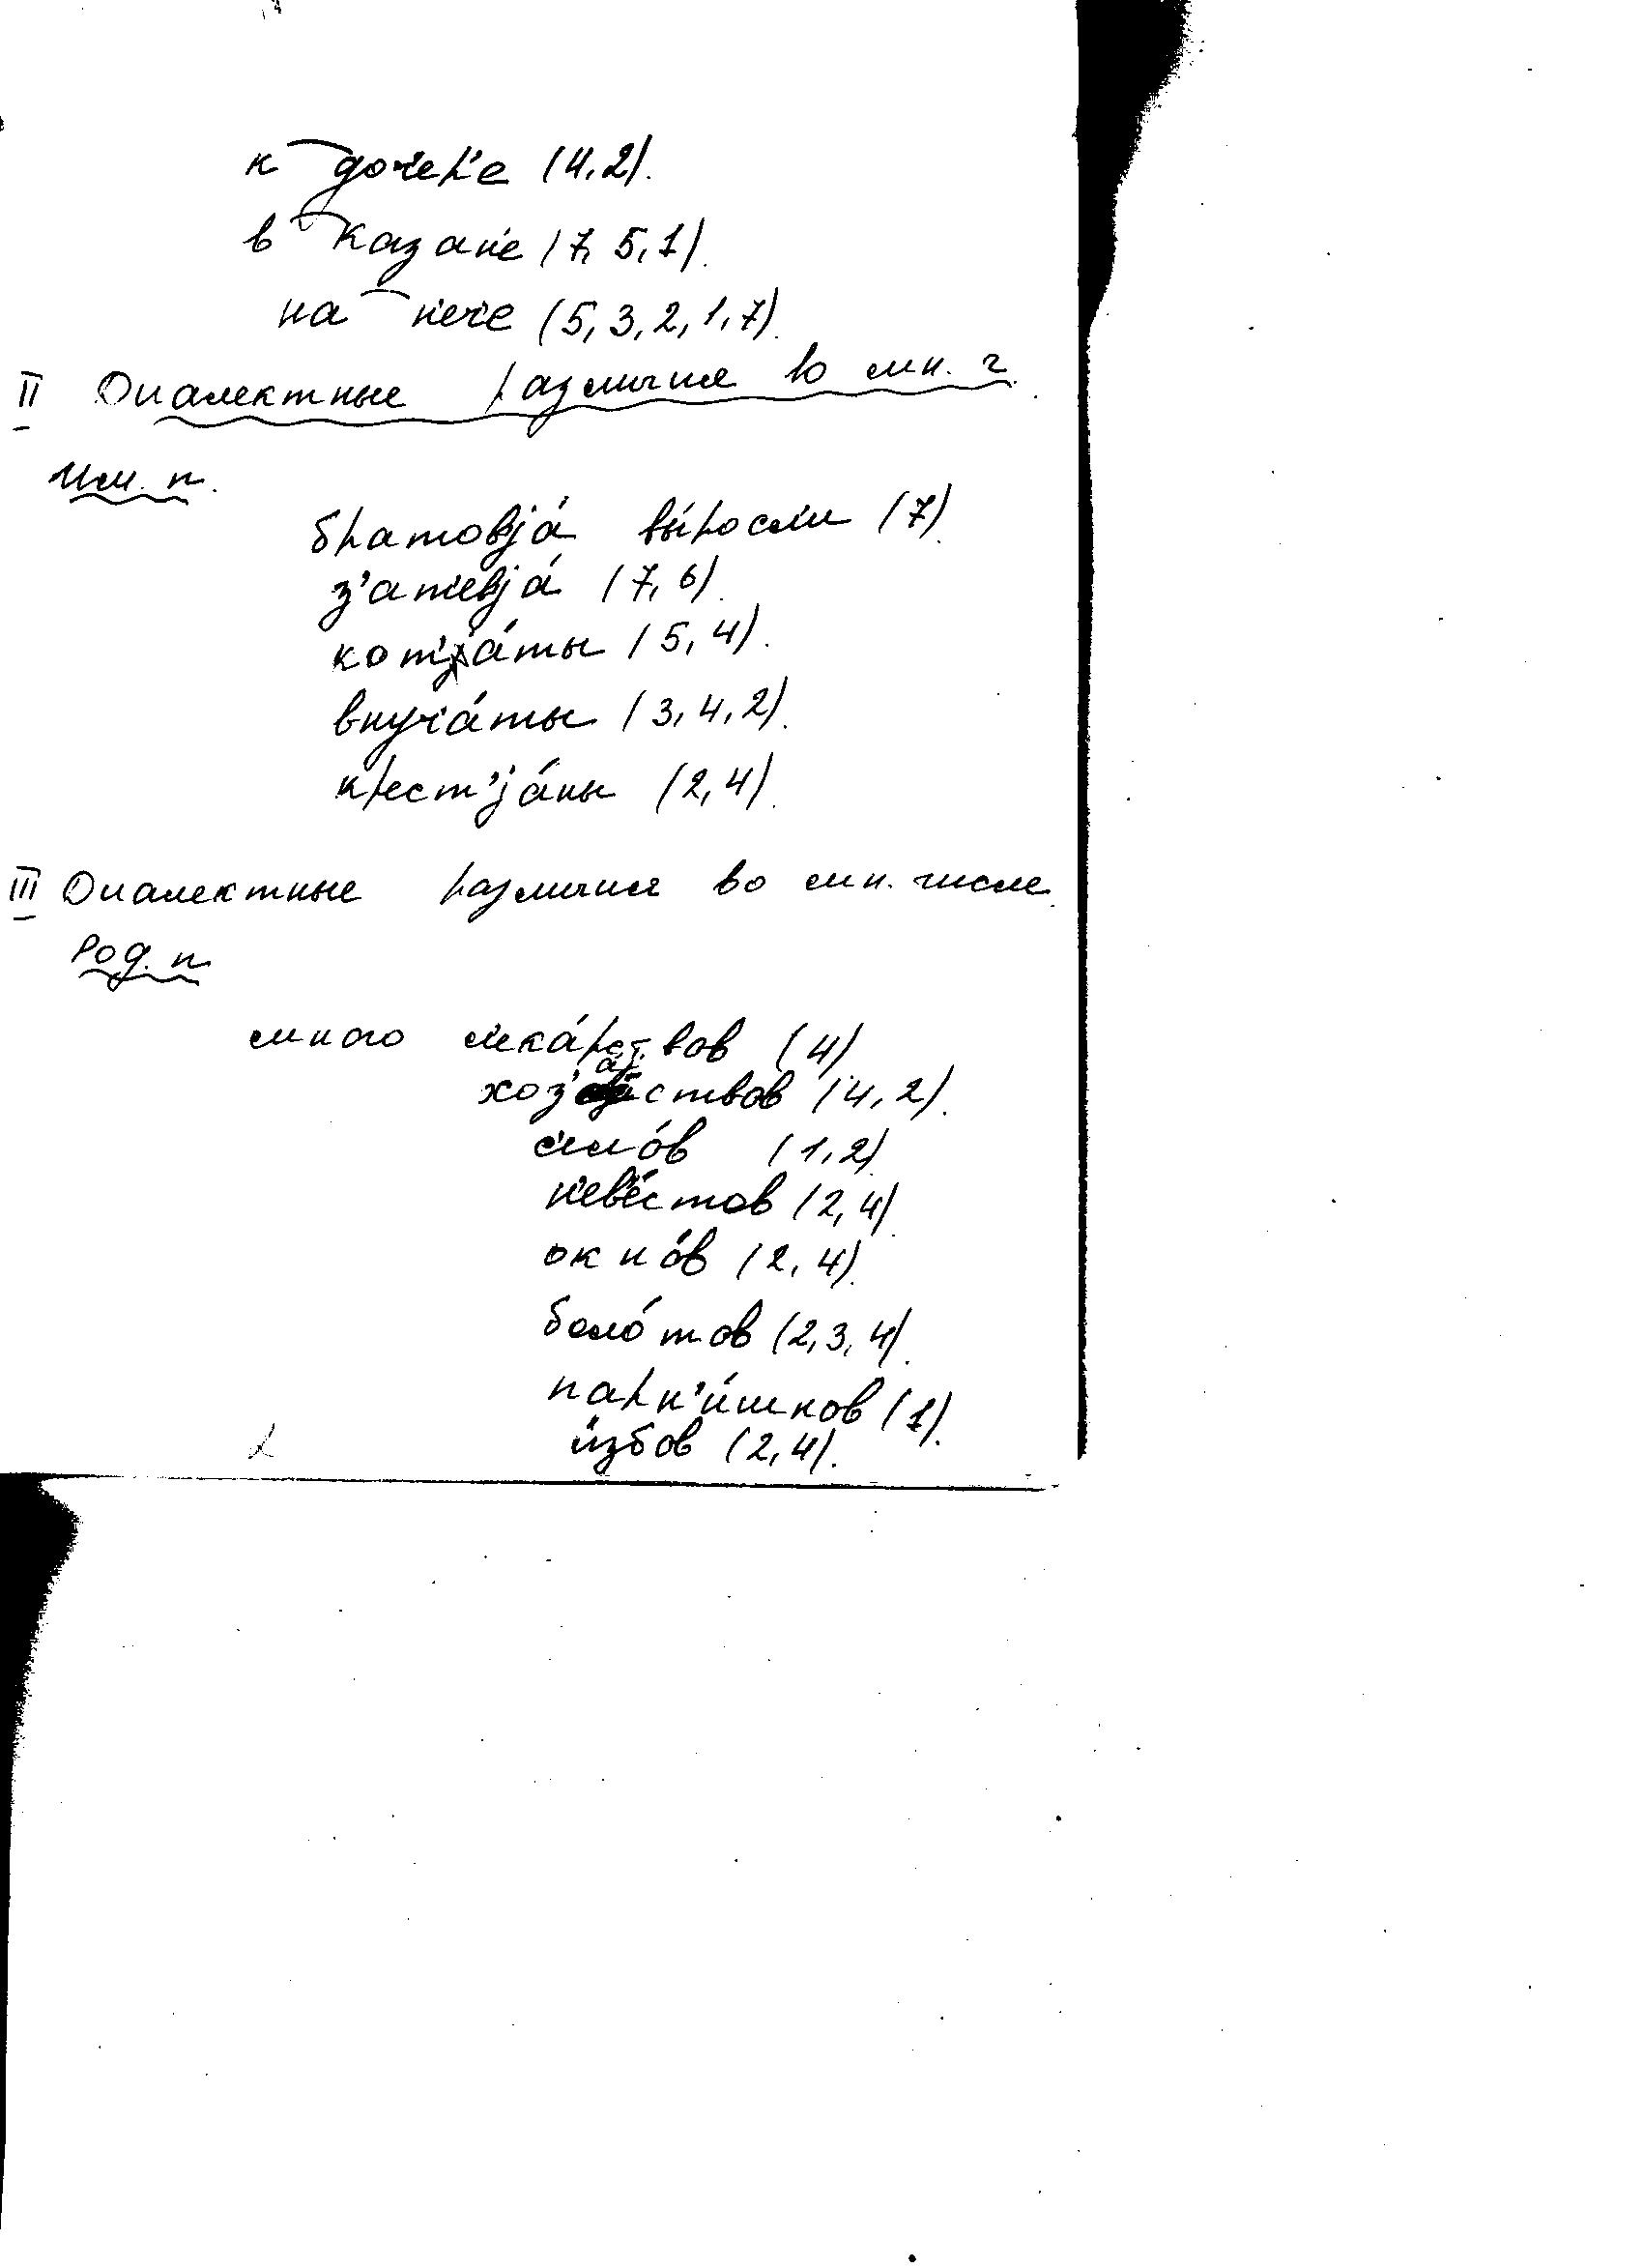 к дочер'е (4,2).
в Казан'е (7, 5, 1).
на п'ече (5, 3, 2, 1, 7).
II Диалектные различия во мн. ч.
Им. п.
братовjа́ вы́росли (7).
з'ат'евjа́ (7, 6).
кот'а́ты (5, 4).
внуча́ты (3, 4, 2).
крест'jа́ны (2, 4).
III Диалектные различия во мн. числе.
Род. п.
много л'ека́рствов (4)
хоз'а́jствов (4, 2).
с'ил'о́в (1, 2)
н'ев'е́стов (2, 4)
окно́в (2, 4).
боло́тов (2, 3, 4).
парн'и́шков (1).
и́збов (2, 4).
2